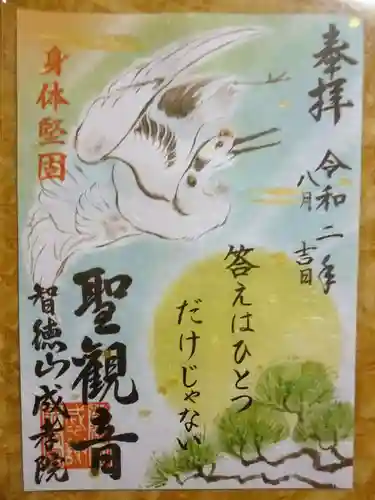 奉拝
令和二年
八月
吉日
身体堅固
答えはひとつ
だけじゃない
聖観音
智徳山成孝院